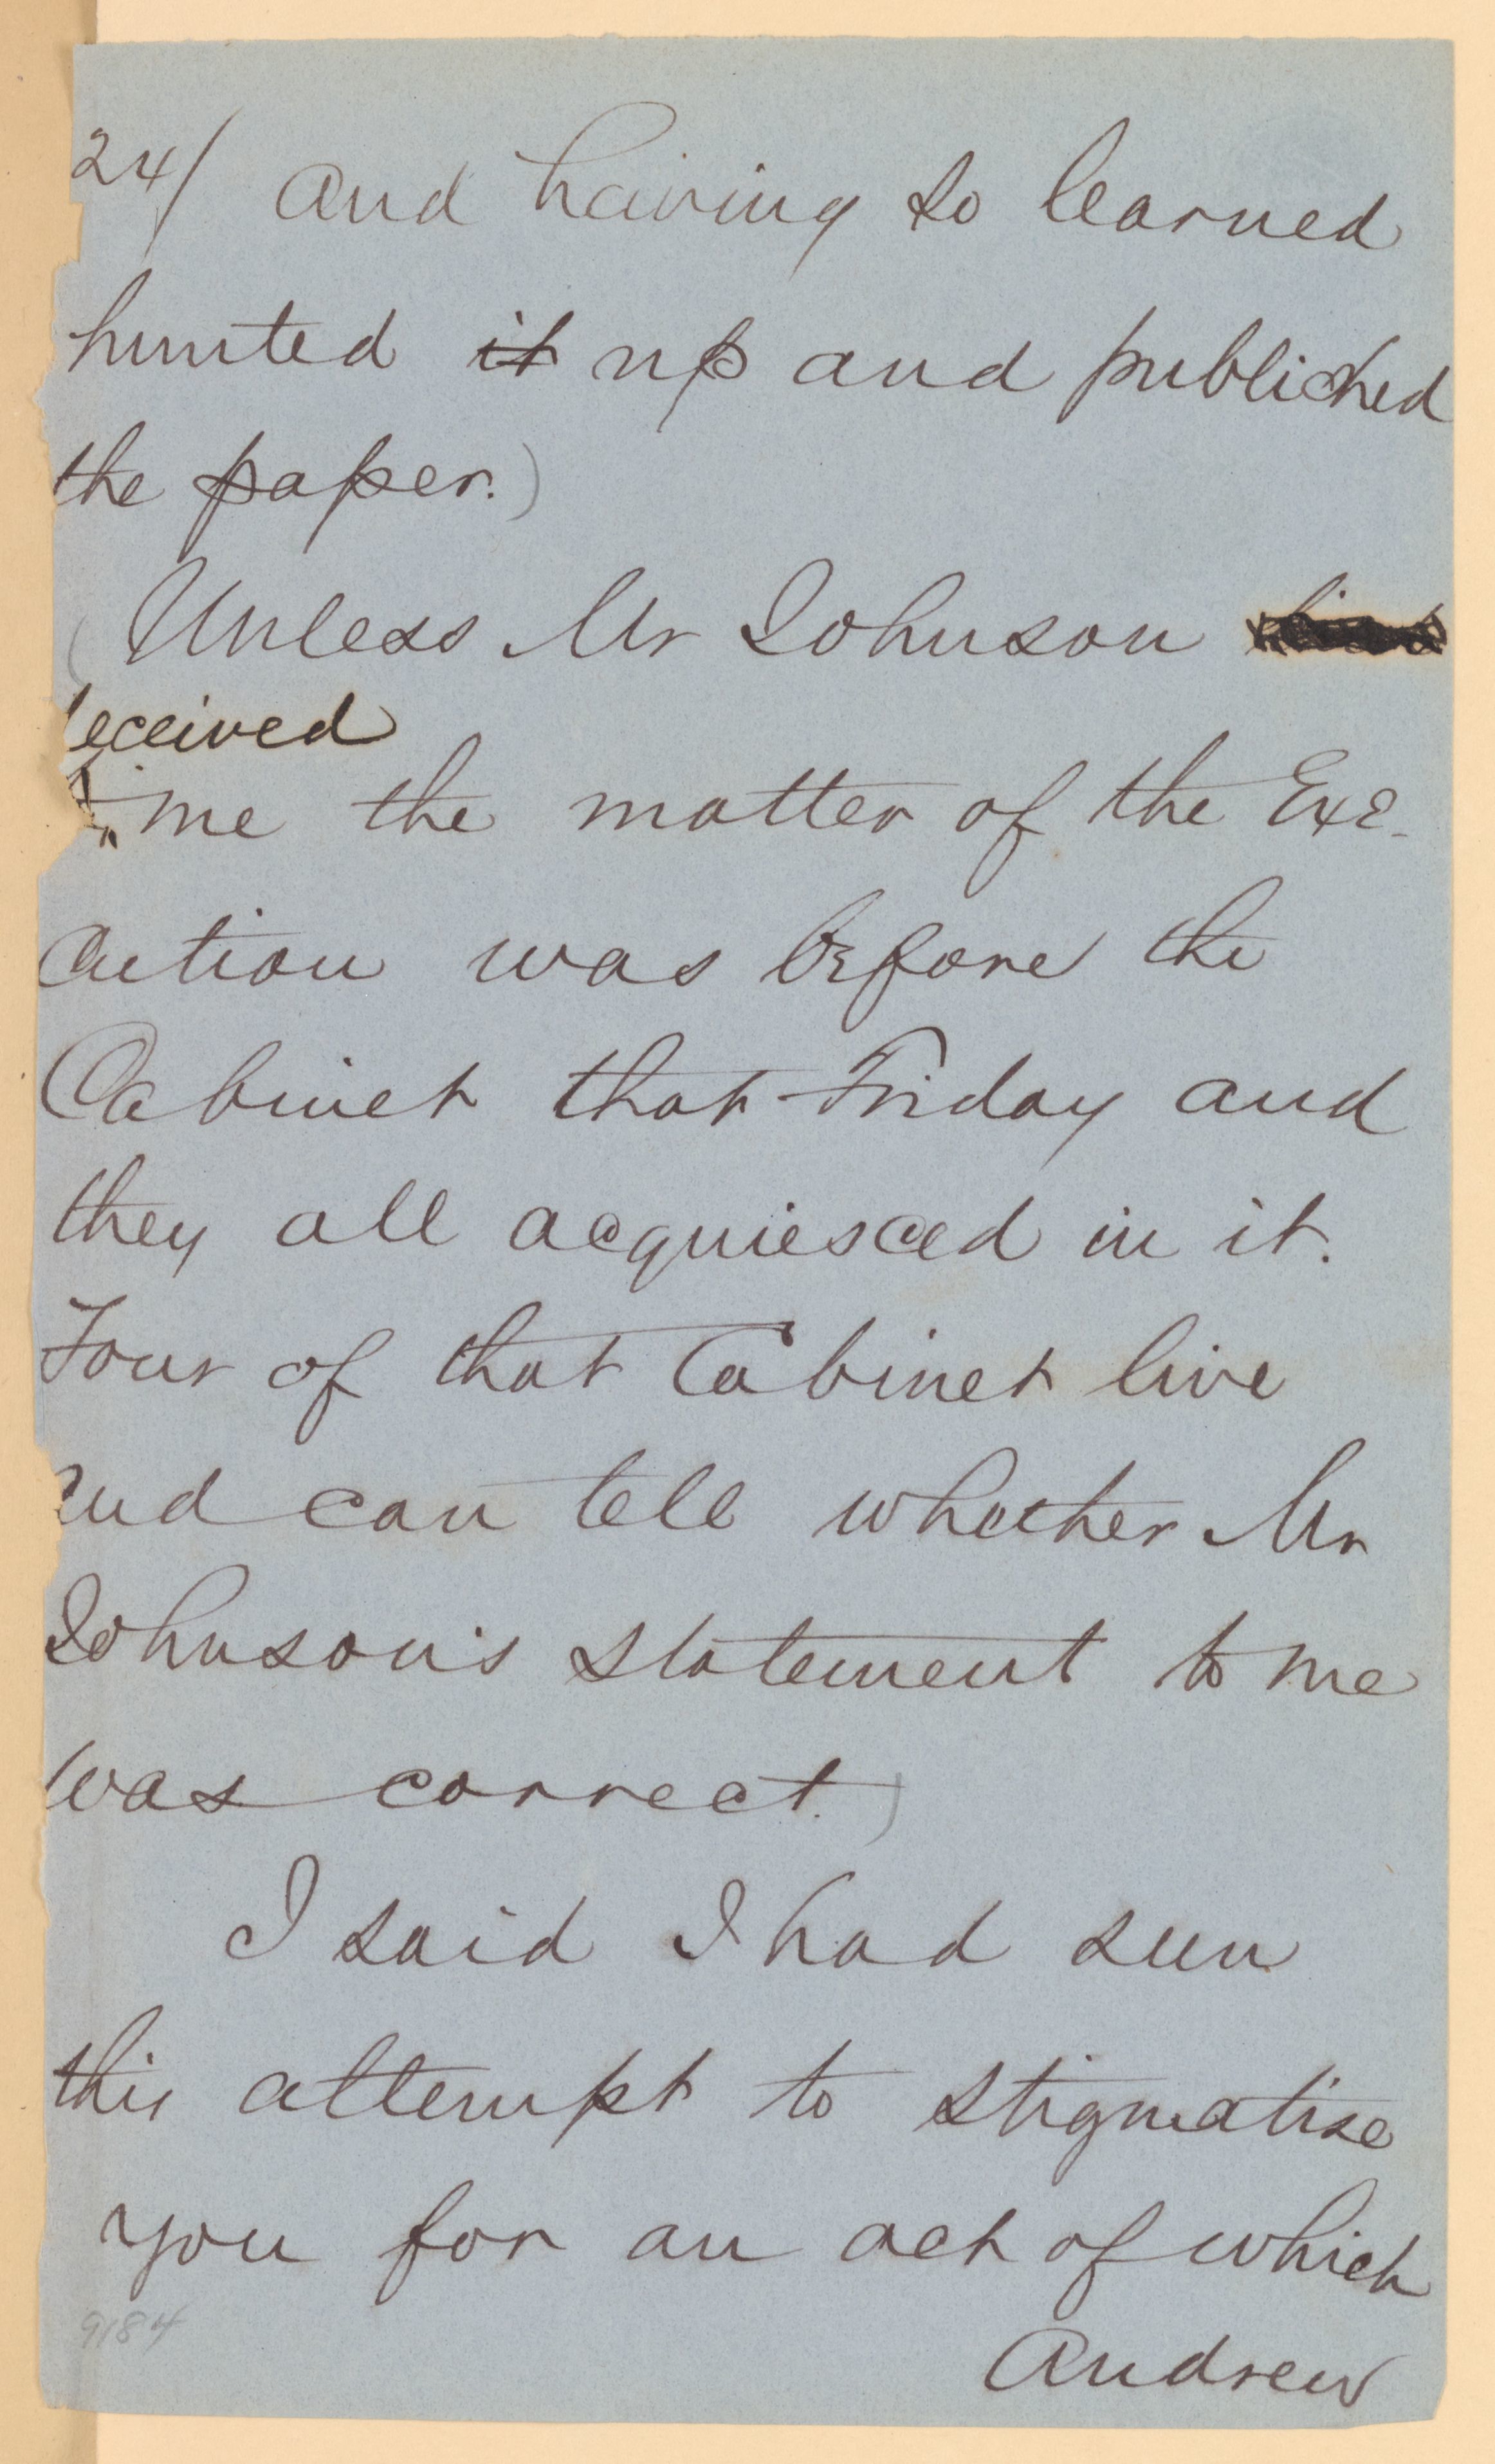 24/ And having so learned
hunted it up and published
the paper.)
(Unless Mr Johnson
eceived
me the matter of the Exe-
cution was before the
Cabinet that Friday and
they all acquiesced in it.
Four of that Cabinet live
and can tell whether Mr
Johnson's statement to me
was correct.)
I said I had seen
this attempt to stigmatise
you for an act of which
9184
Andrew